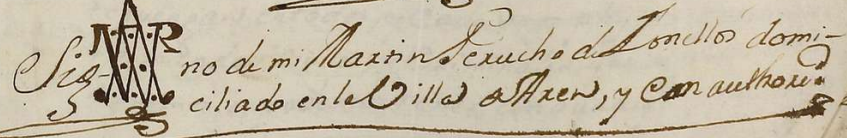 Sig-no de mi Martin Perucho de Tonellos domi-
ciliado en la Villa de Aren, y con authorid.